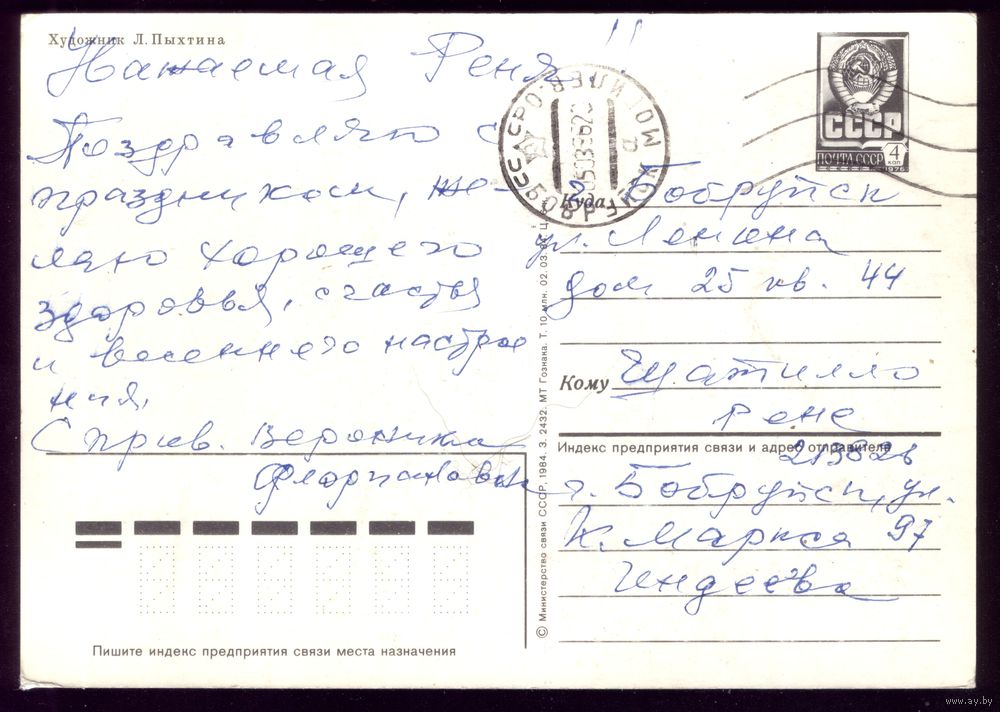 Художник Л. Пыхтина
Уважаемая Реня!!
Поздравляю с
праздником, же-
лаю хорошего
здоровья, счастья
и весеннего настрое
ния.
С прив. Вероника
Флориановн
Пишите индекс предприятия связи места назначения
© Министерство связи СССР, 1984. З. 2432. МТ Гознака. Т. 10 млн. 02. 03. 84 Ц
СССР
ПОЧТА СССР
4 коп
1976
Куда г. Бобруйск
ул. Ленина
дом 25 кв. 44
Кому Шатилло
Рене
Индекс предприятия связи и адрес отправителя
213826
г. Бобруйск, ул.
К. Маркса 97
www.ay.by